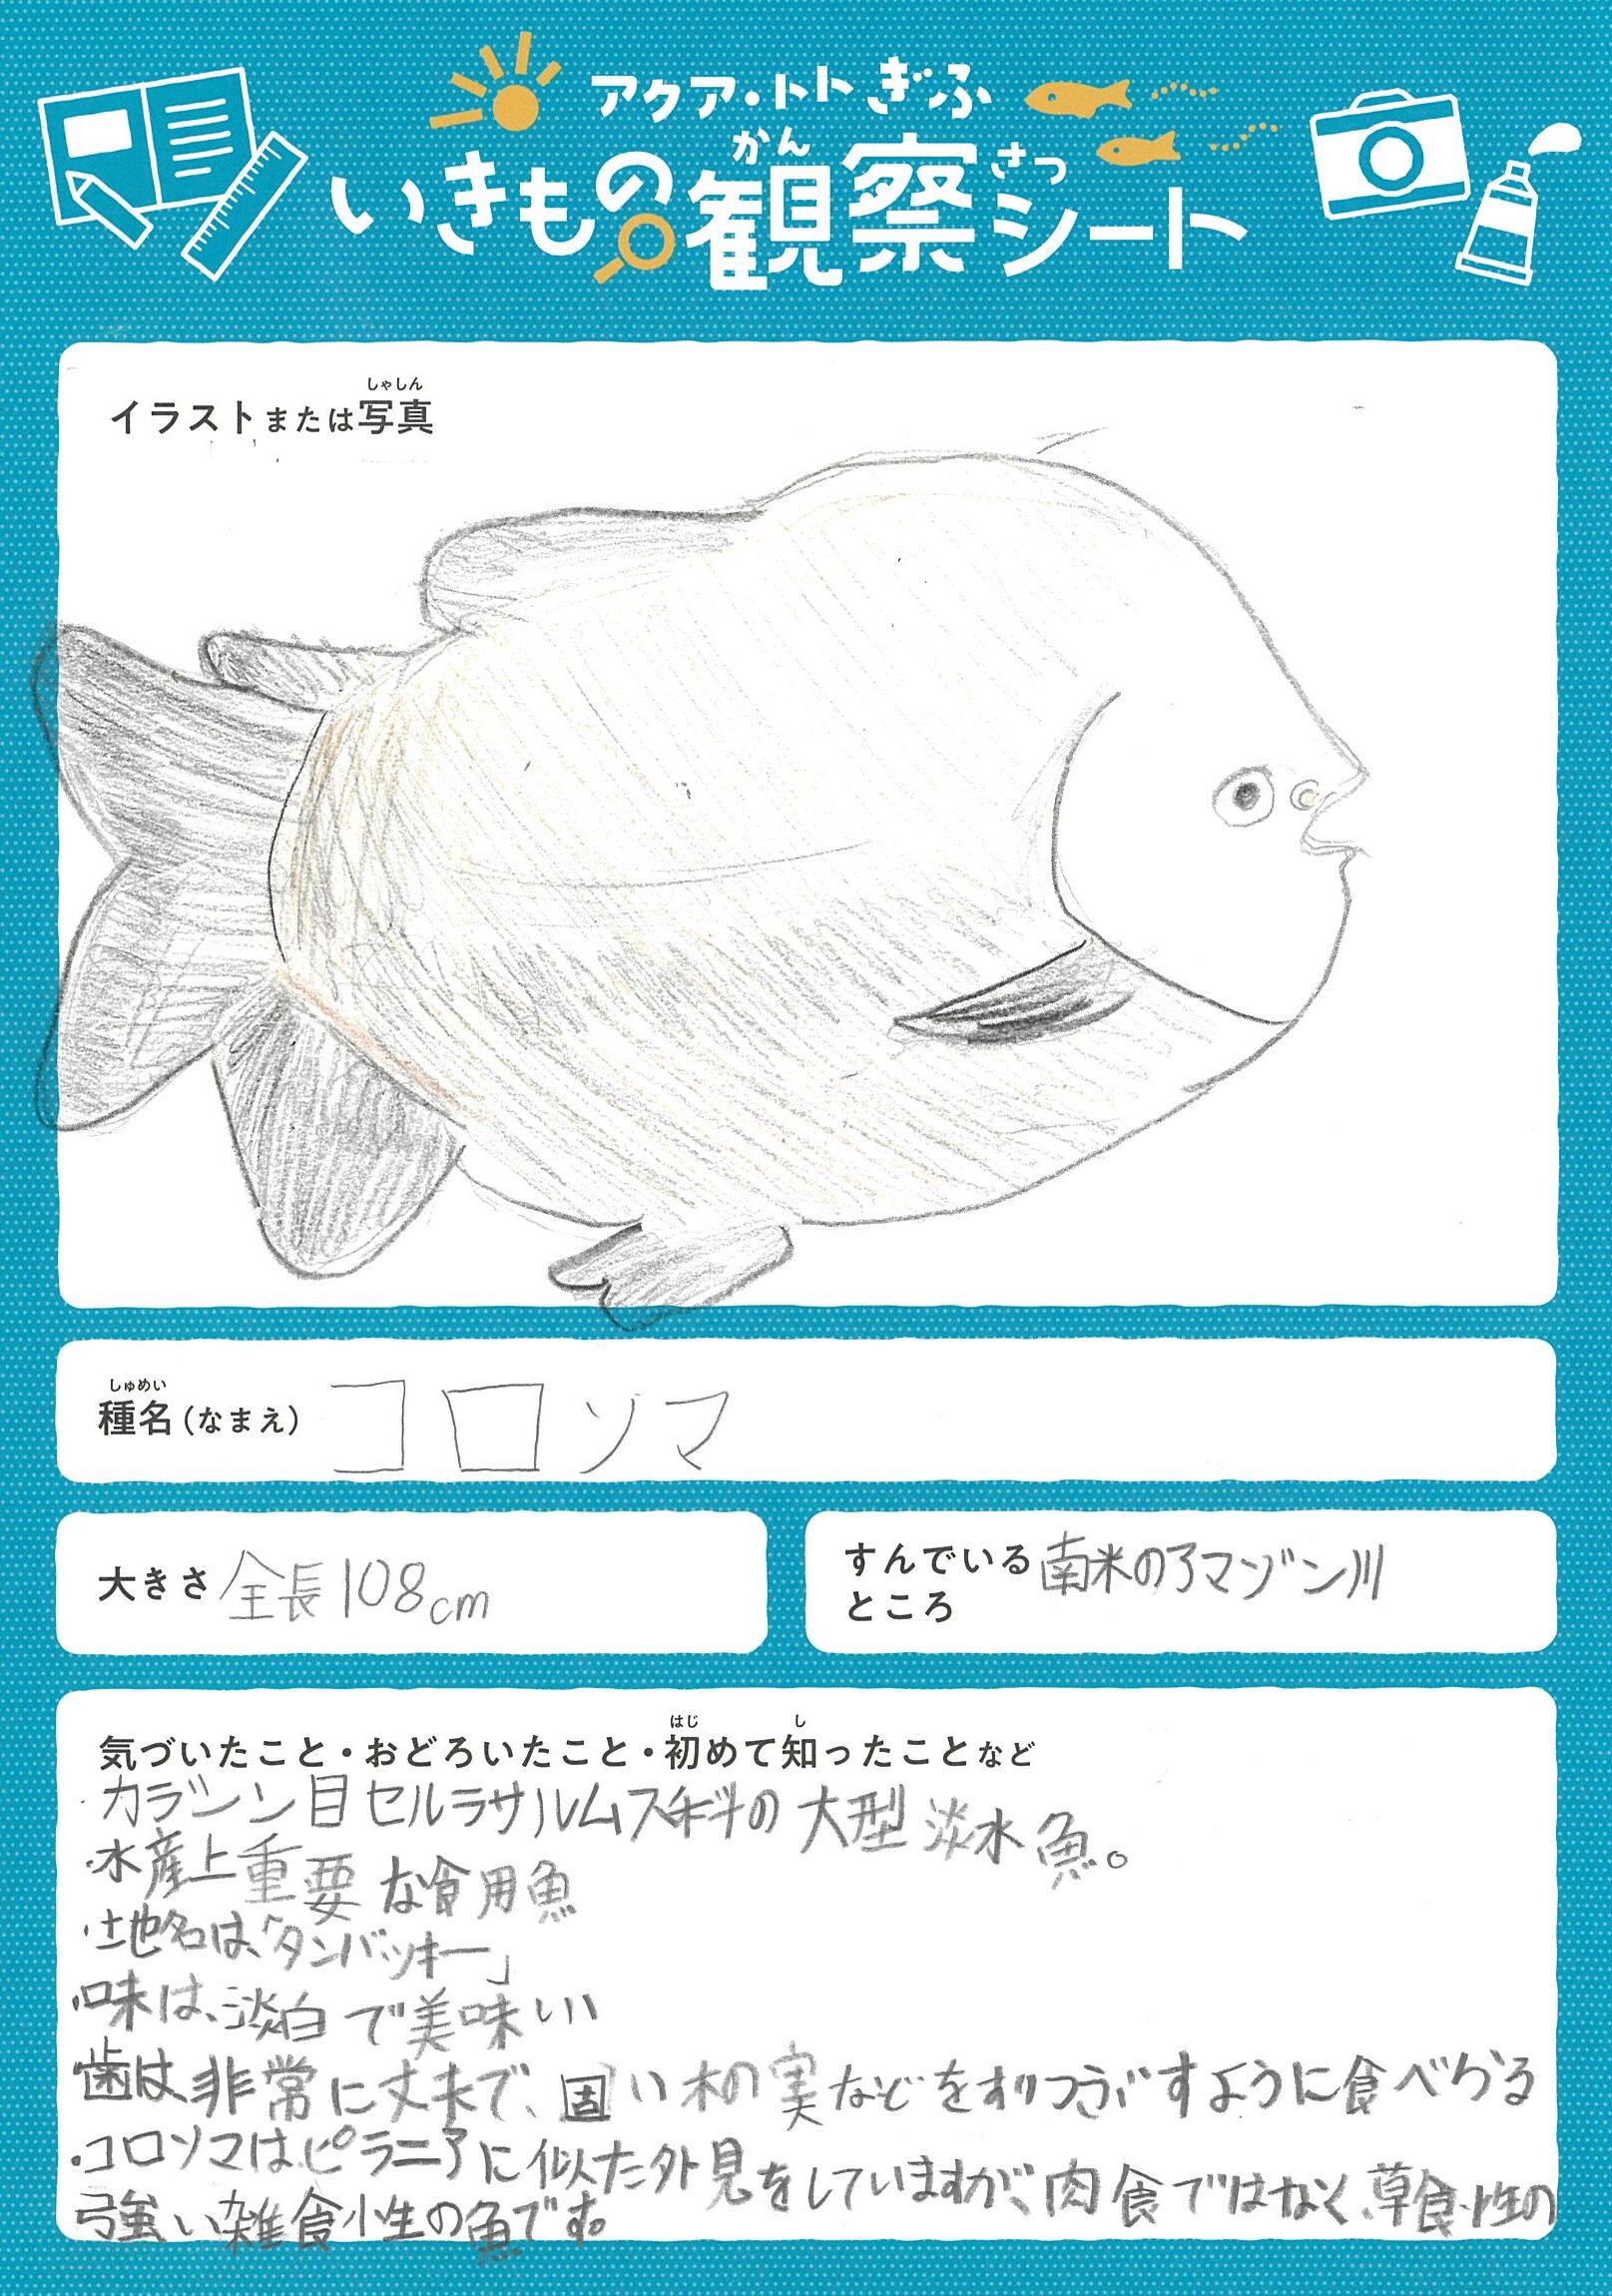 アクア・トトぎふ
かん さつ
いきもの観察シート
しゃしん
イラストまたは写真
しゅめい
種名(なまえ) コロソマ
大きさ 全長108cm
すんでいる 南米のアマゾン川
ところ
はじ し
気づいたこと・おどろいたこと・初めて知ったことなど
・カラシン目セルラサルムス科の大型淡水魚。
・水産上重要な食用魚
・地名は、「タンバッキー」
・味は、淡白で美味い
・歯は非常に丈夫で、固い木の実などをすりつぶすように食べる
・コロソマはピラニアに似た外見をしていますが、肉食ではなく、草食性の
強い雑食性の魚です。